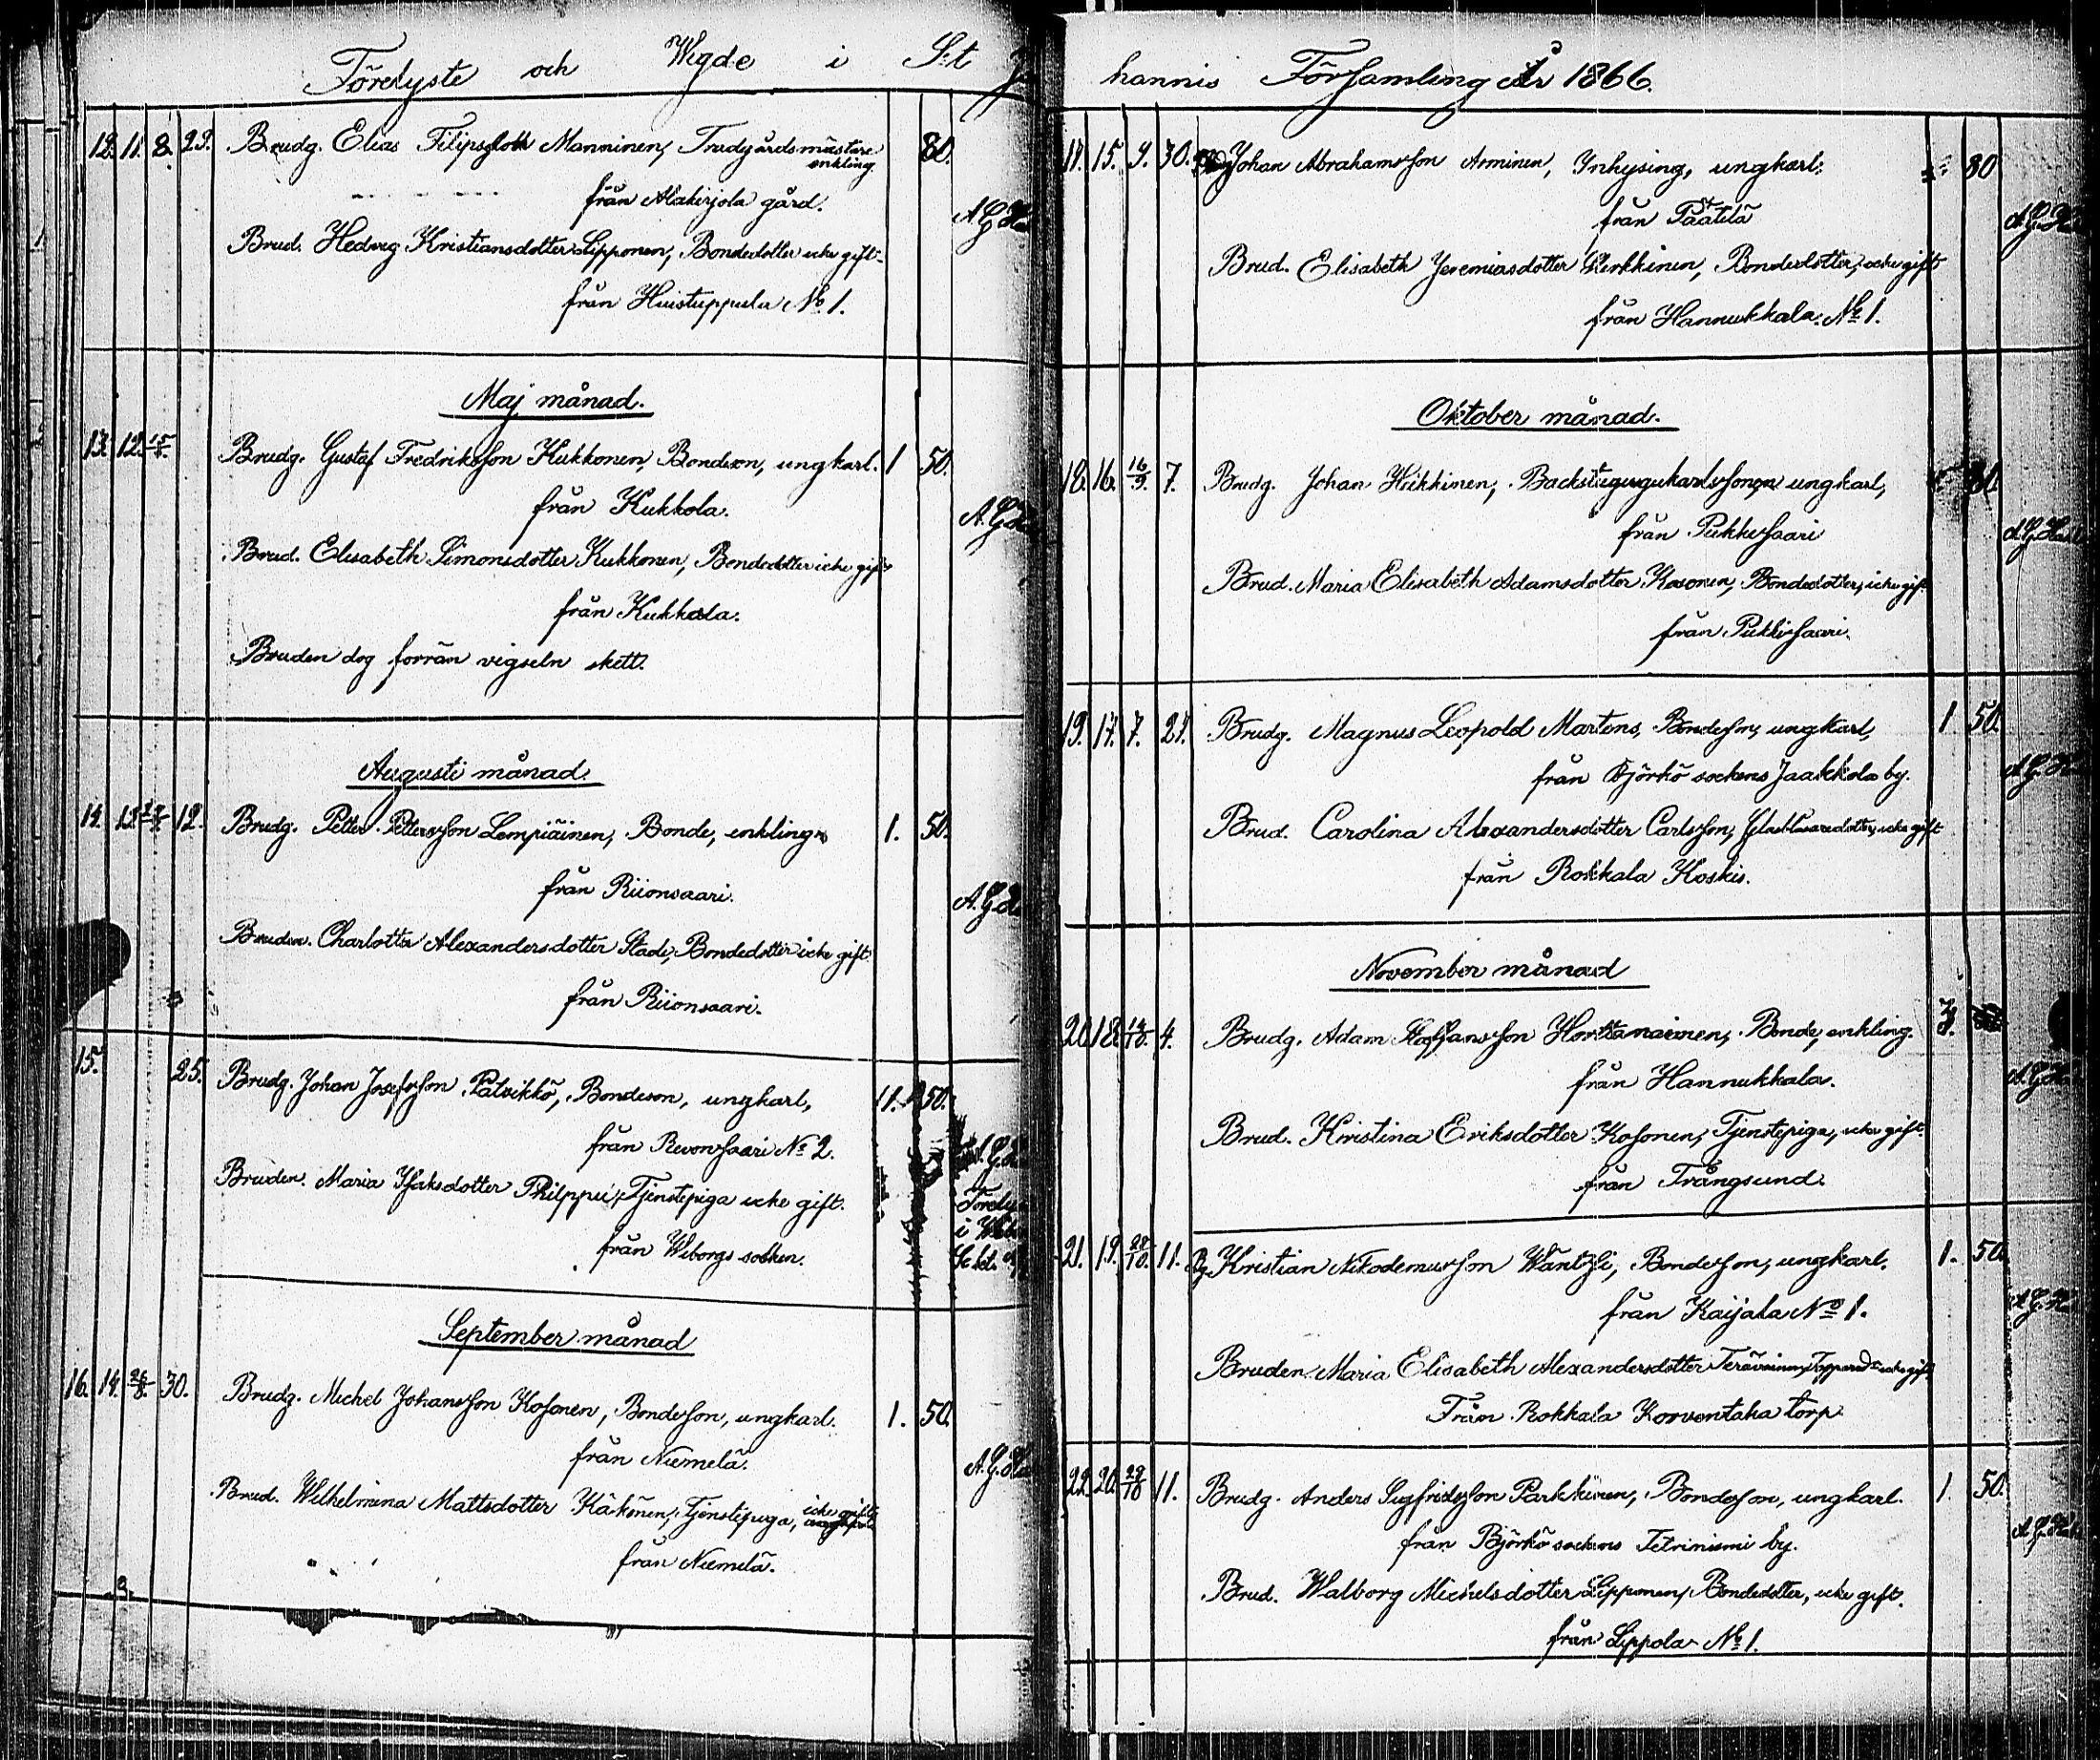 Förelyste och Wigde i S:t Jo
12. 11. 8. 22. Brudg. Elias Filipsson Manninen, Trädgårdsmästare 80.
enkling
från Alakirjola gård.
A. G. Ha
Brud. Hedvig Kristiansdotter Lipponen, Bondedotter icke gift
från Huistuppula No 1.
Maj månad.
13. 12. Brudg. Gustaf Fredriksson Kukkonen, Bondeson, ungkarl. 1 50.
från Kukkola.
A. G. Ha
Brud. Elisabeth Simonsdotter Kukkonen, Bondedotter icke gift
från Kukkola.
Bruden dog förrän vigseln skett.
Augusti månad.
14. 12. Brudg. Petter Pettersson Lempiäinen, Bonde, enkling 1. 50.
från Riionsaari.
A. G. Ha
Bruden. Charlotta Alexandersdotter Stade, Bondedotter icke gift
från Riionsaari.
15. 25. Brudg. Johan Josefsson Patvikkö, Bondeson, ungkarl, 1. 50.
från Revonsaari No 2.
A. G. Ha
Bruden. Maria Isaksdotter Philppu, Tjenstepiga icke gift.
från Wiborgs socken.
September månad
16. 14. 26/8. 30. Brudg. Michel Johansson Kosonen, Bondeson, ungkarl. 1. 50.
från Niemelä.
A. G. Ha
Brud. Wilhelmina Mattsdotter Käkönen, Tjenstepiga, icke gift
från Niemelä.
hannis Församling År 1866.
17. 15. 9. 30. Johan Abrahamsson Arminen, Inhysing, ungkarl, 80
från Päätilä
A. G. Ha
Brud. Elisabeth Jeremiasdotter Kerkkinen, Bondedotter, icke gift
från Hannukkala No 1.
Oktober månad.
18. 16. 16/9. 7. Brudg. Johan Heikkinen, ungkarl,
från Pukkisaari
A. G. Ha
Brud. Maria Elisabeth Adamsdotter Kosonen, Bondedotter, icke gift
från Pukkisaari.
19. 17. 7. 27. Brudg. Magnus Leopold Martens, Bondeson, ungkarl, 1 50.
från Björkö sockens Jaakkola by.
A. G. Ha
Brud. Carolina Alexandersdotter Carlsson, icke gift
från Rokkala Koskis.
November månad
20. 18. 14/10. 4. Brudg. Adam Staffansson Horttanainen, Bonde, enkling.
från Hannukkala.
A. G. Ha
Brud. Kristina Eriksdotter Kosonen, Tjenstepiga, icke gift.
från Trångsund.
21. 19. 28/10. 11. Bg. Kristian Nikodemusson Wäntzi, Bondeson, ungkarl. 1. 50.
från Kaijala No 1.
A. G. Ha
Bruden Maria Elisabeth Alexandersdotter Terävainen, icke gift
Från Rokkala Korventaka torp
22. 20. 28/10 11. Brudg. Anders Sigfridsson Parkkinen, Bondeson, ungkarl. 1. 50.
från Björkö sockens Tetriniemi by.
A. G. Ha
Brud. Walborg Michelsdotter Lipponen, Bondedotter, icke gift.
från Lippola No 1.